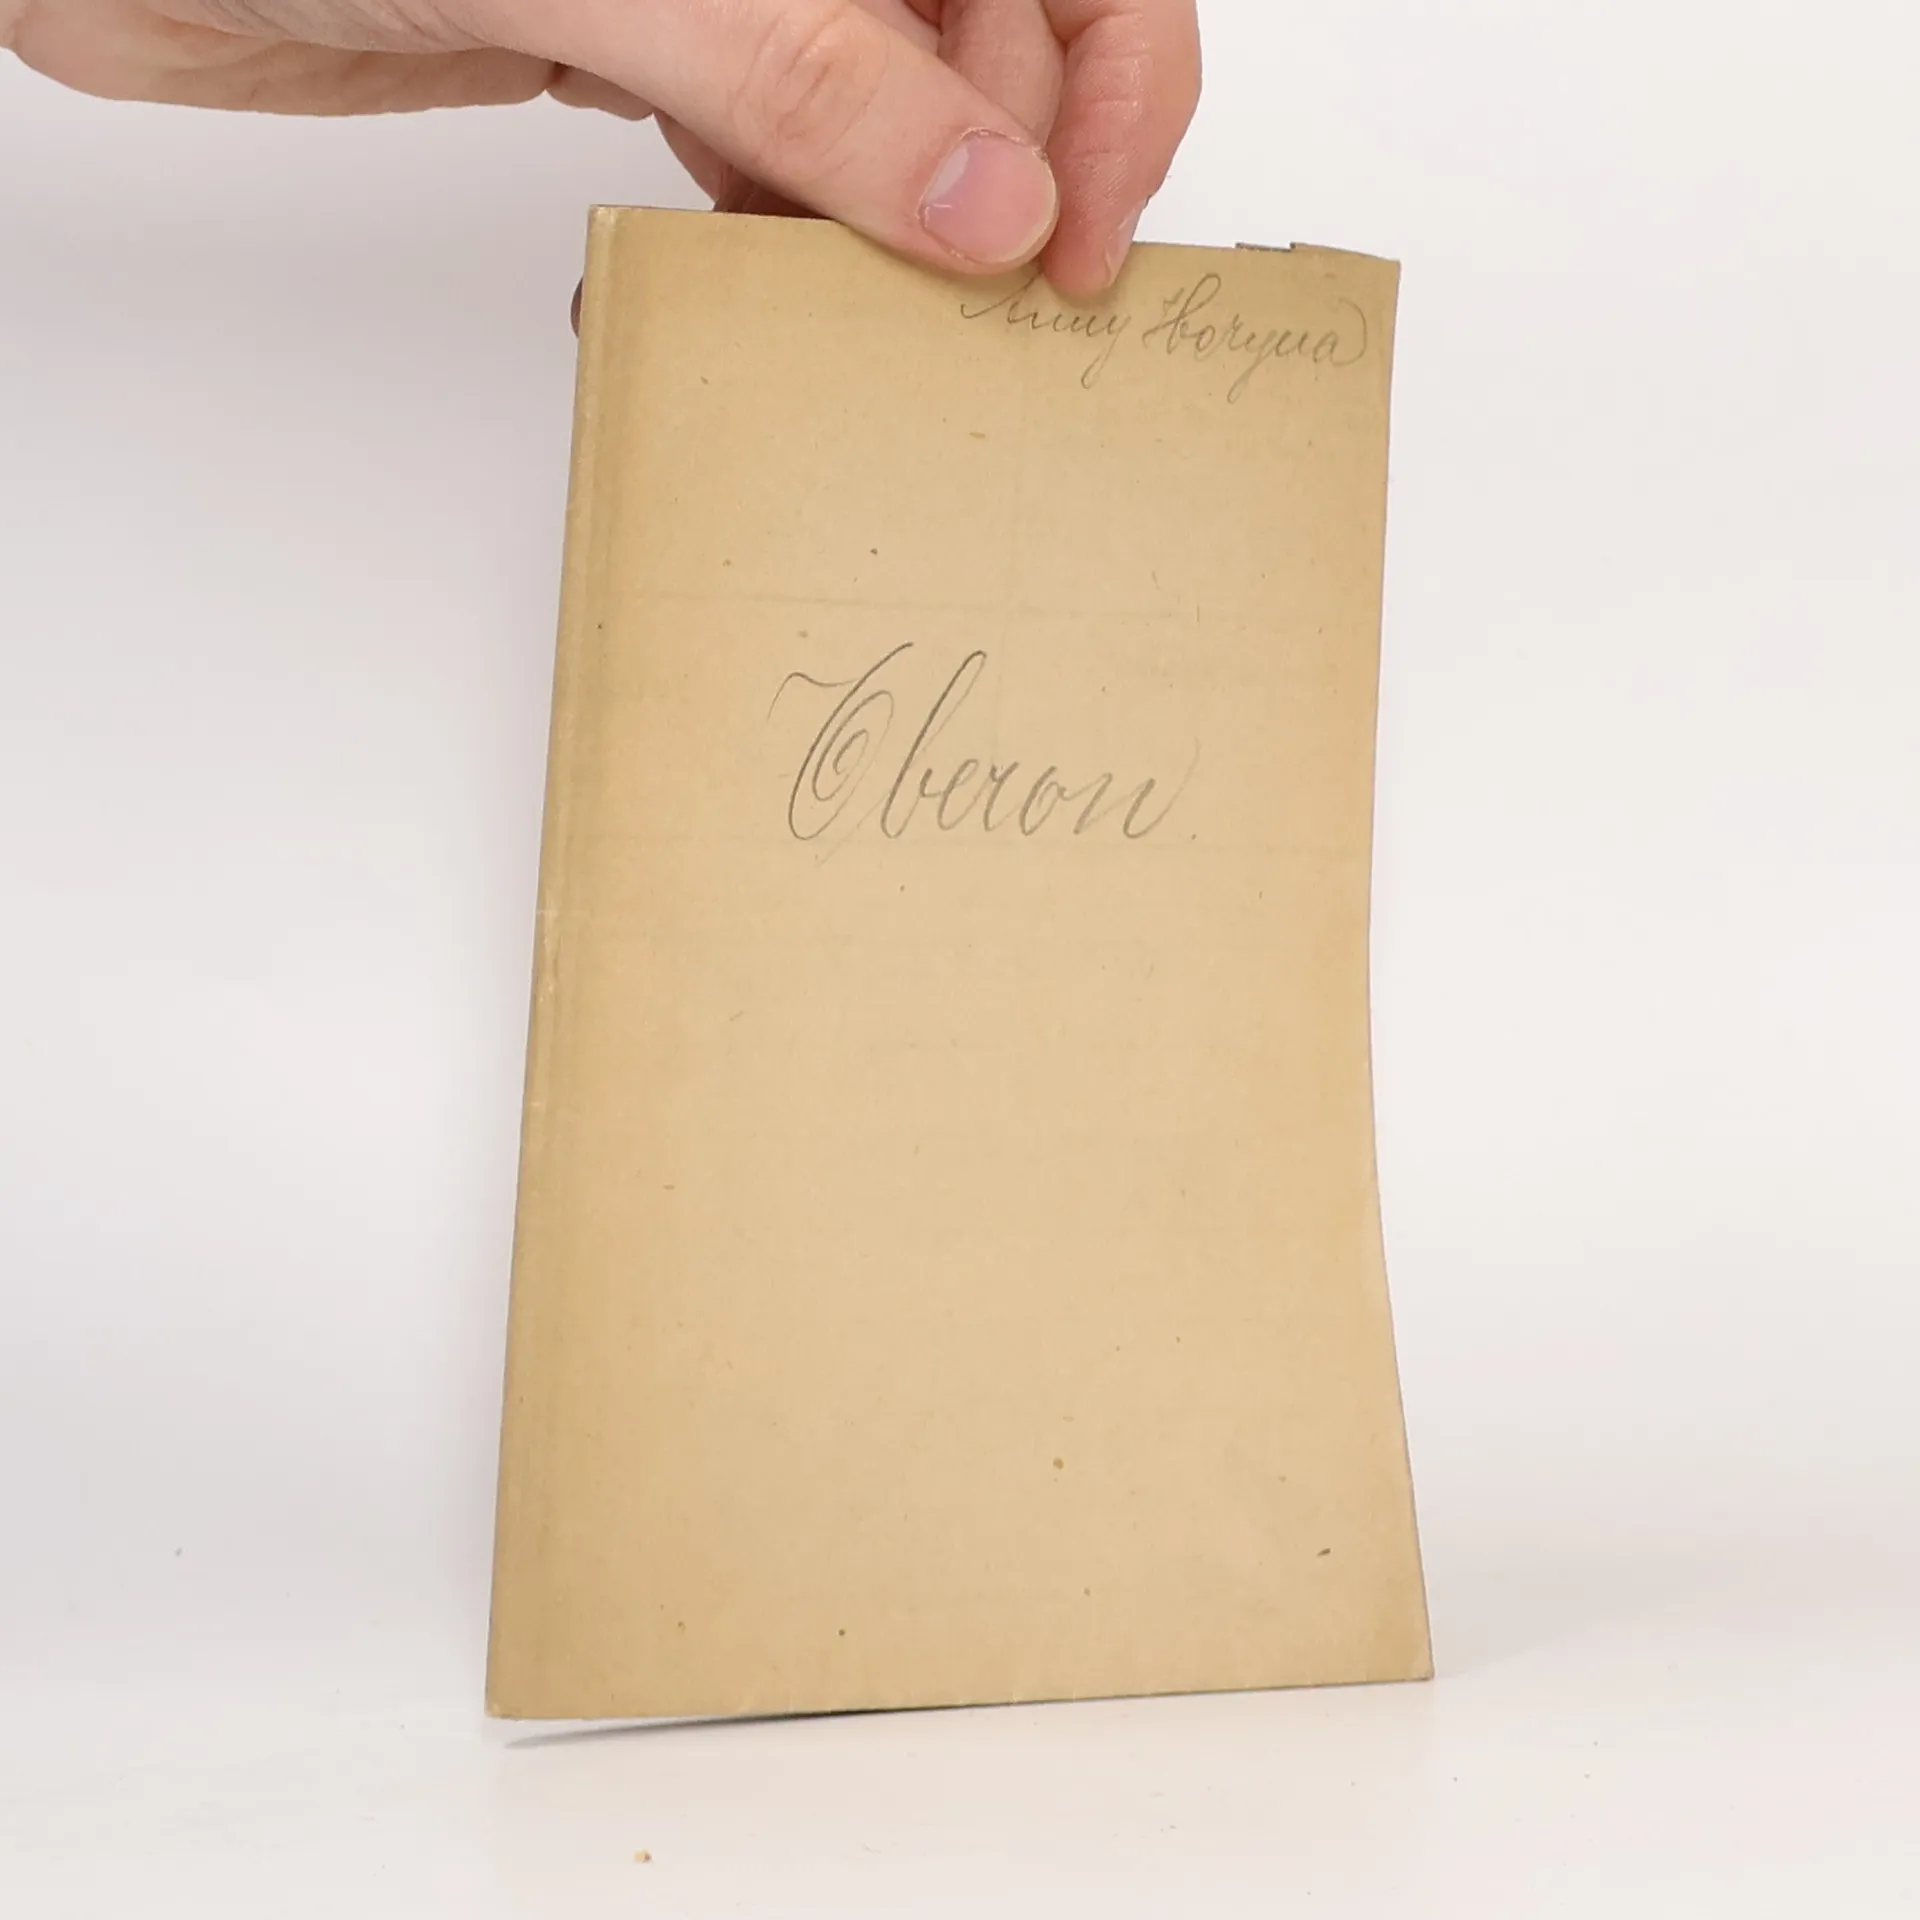 Anny Horyna
Oberon.